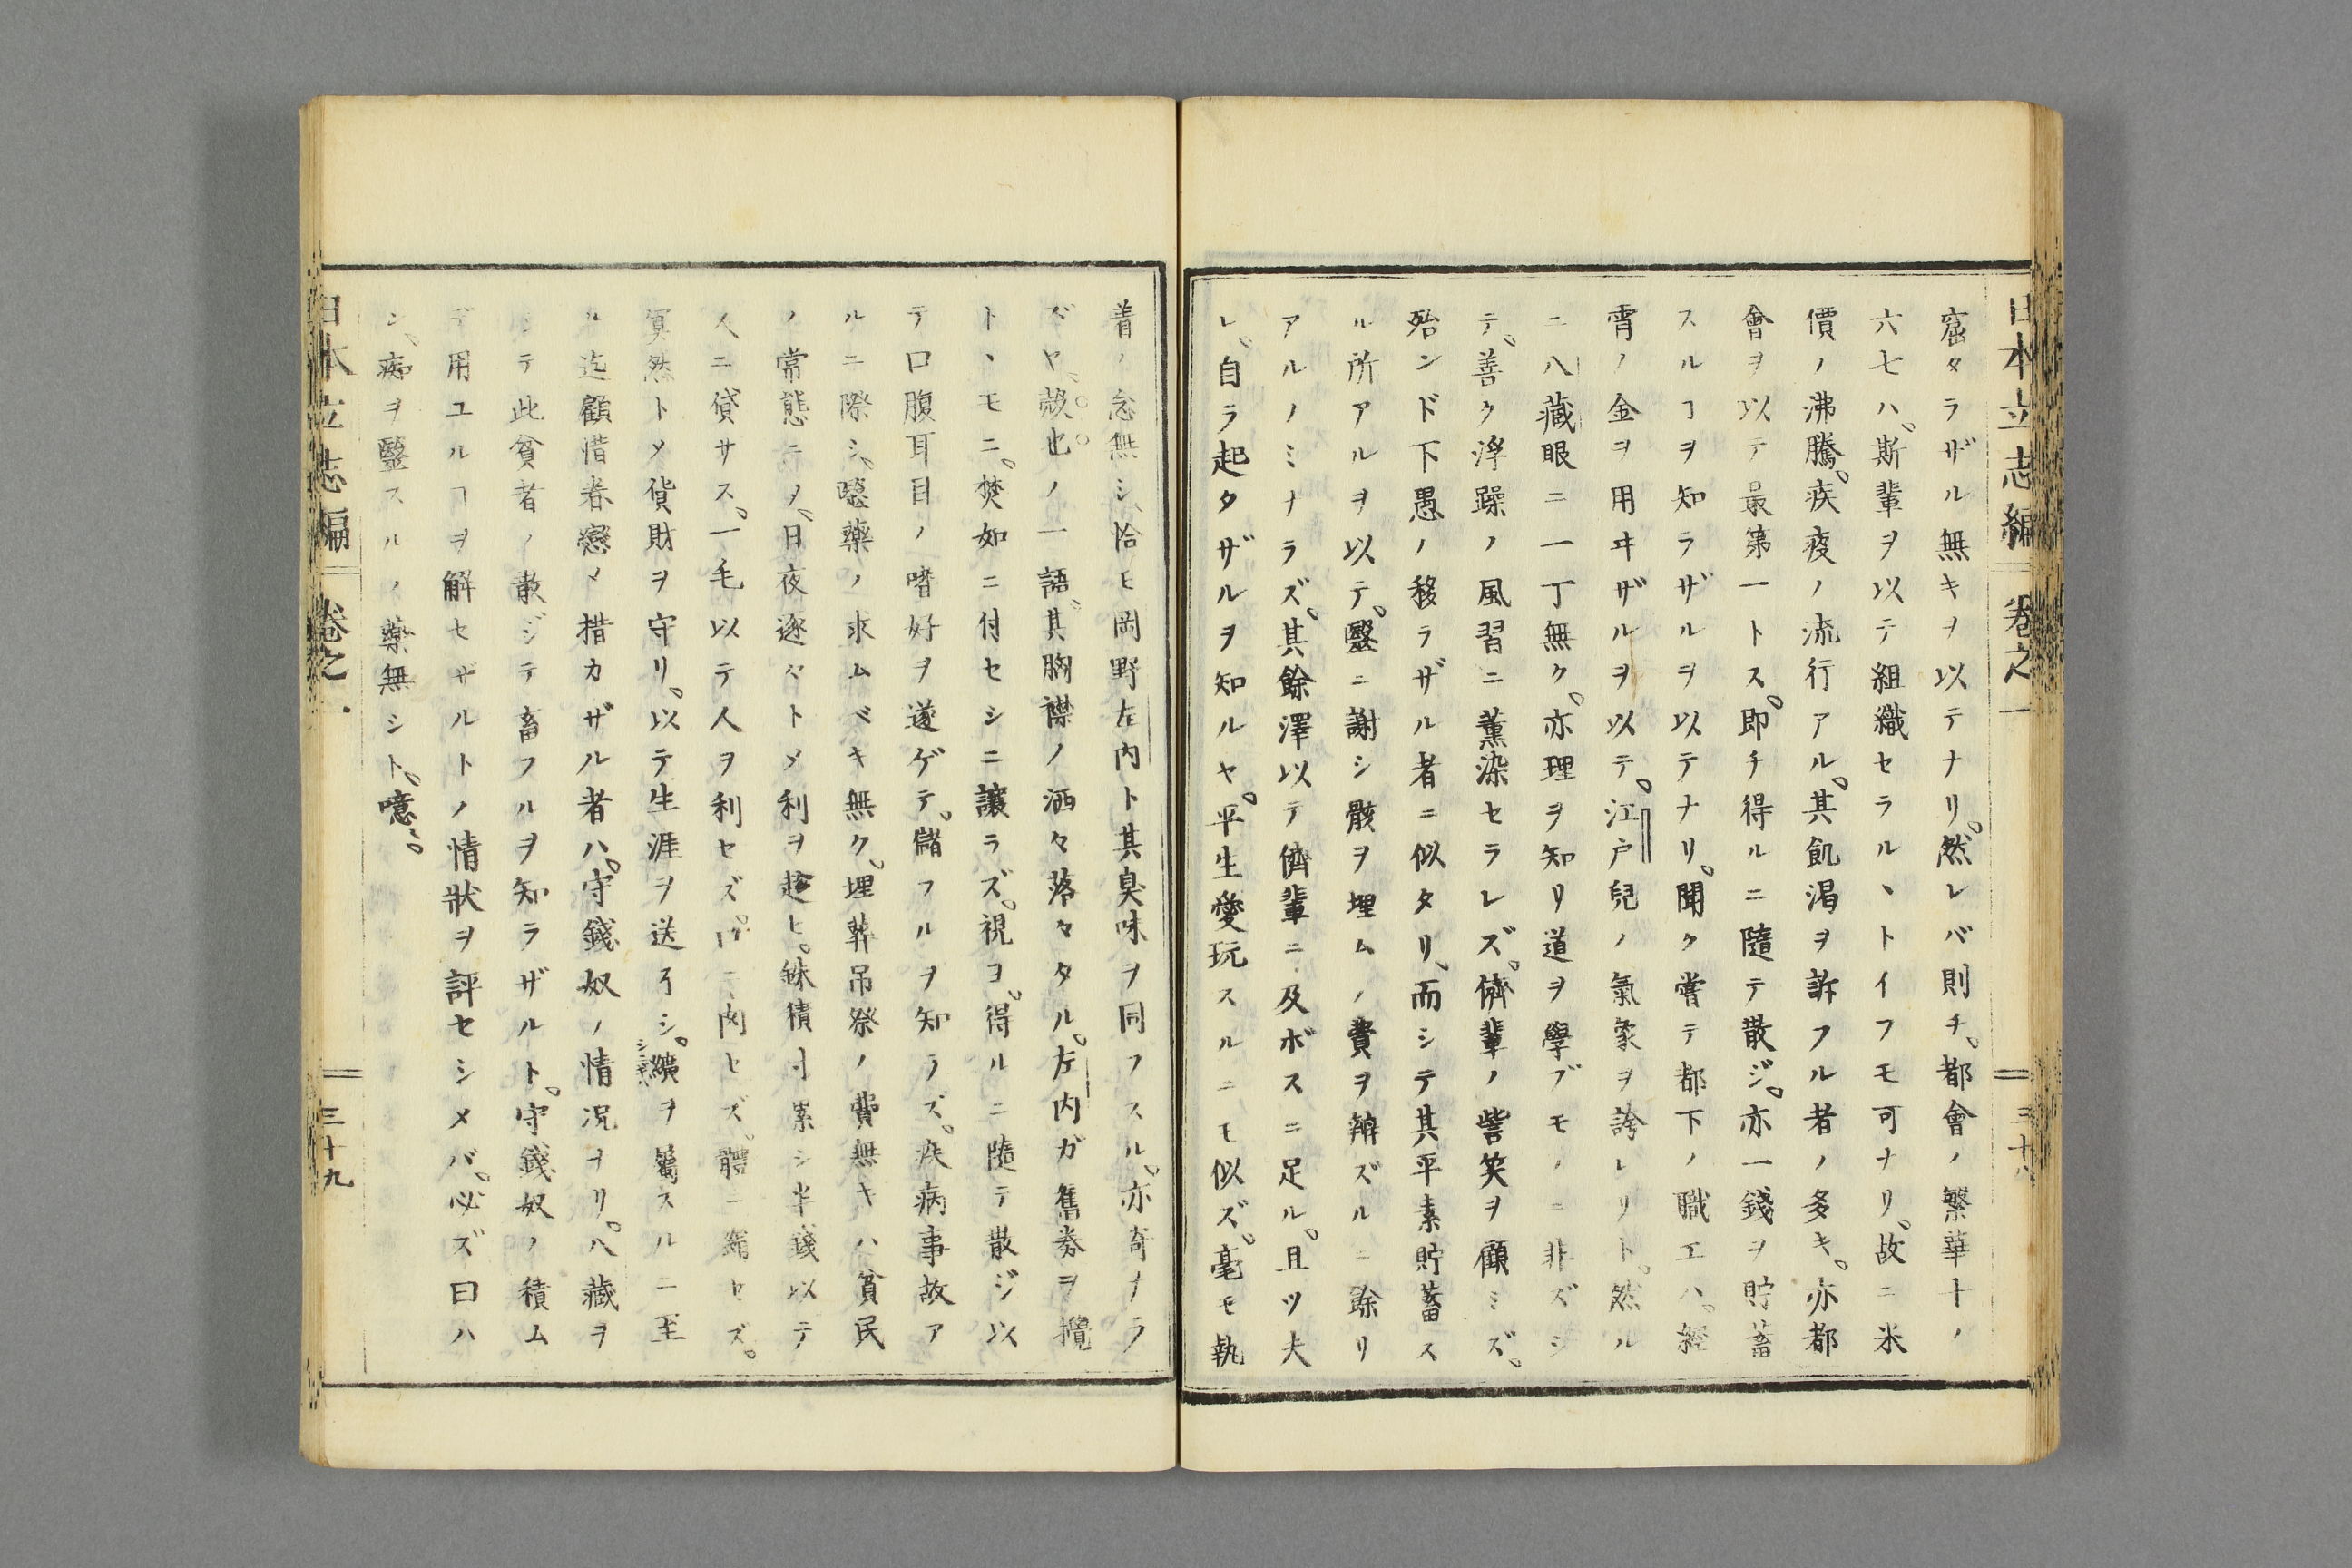 日本立志編 卷之一 三十八
窟タラザル無キヲ以テナリ。然レバ則チ。都會ノ繁華十ノ
六七ハ、斯輩ヲ以テ組織セラルヽトイフモ可ナリ。故ニ米
價ノ沸騰。疾疫ノ流行アル。其飢渇ヲ訴フル者ノ多キ。亦都
會ヲ以テ最第一トス。即チ得ルニ隨テ散ジ。亦一錢ヲ貯蓄
スルヿヲ知ラザルヲ以テナリ。聞ク嘗テ都下ノ職工ハ。經
霄ノ金ヲ用ヰザルヲ以テ。江戸兒ノ氣象ヲ誇レリト。然ル
ニ八藏眼ニ一丁無ク。亦理ヲ知リ道ヲ學ブモノニ非ズシ
テ、善ク浮躁ノ風習ニ薫染セラレズ。儕輩ノ訾笑ヲ顧ミズ。
殆ンド下愚ノ移ラザル者ニ似タリ、而シテ其平素貯蓄ス
ル所アルヲ以テ。醫ニ謝シ骸ヲ埋ムノ費ヲ辨ズルニ餘リ
アルノミナラズ。其餘澤以テ儕輩ニ及ボスニ足ル。且ツ夫
レ、自ラ起タザルヲ知ルヤ。平生愛玩スルニモ似ズ。毫モ執
着ノ念無シ、恰モ岡野左内ト其臭味ヲ同フスル、亦奇ナラ
ズヤ。殻也ノ一語。其胸襟ノ洒々落々タル。左内ガ舊券ヲ攬
トヽモニ。焚如ニ付セシニ讓ラズ。視ヨ。得ルニ隨テ散ジ以
テ口腹耳目ノ嗜好ヲ遂ゲテ。儲フルヲ知ラズ。疾病事故ア
ルニ際シ。醫藥ノ求ムベキ無ク。埋葬吊祭ノ費無キハ貧民
ノ常態ニメ、日夜逐々トメ利ヲ趁ヒ。銖積寸累シ半錢以テ
人ニ貸サス。一毛以テ人ヲ利セズ。口ニ肉セズ。體ニ絹セズ。
冥然トメ貨財ヲ守リ。以テ生涯ヲ送ラシ。纊ヲ屬スルニ至
ル迄顧惜眷戀メ措カザル者ハ。守錢奴ノ情况ナリ。八藏ヲ
シテ此貧者ノ散ジテ畜フルヲ知ラザルト。守錢奴ノ積ム
デ用ユルヿヲ解セザルトノ情狀ヲ評セシメバ。必ズ曰ハ
シ。痴ヲ醫スルノ藥無シト。噫。
日本立志編 卷之一 三十九